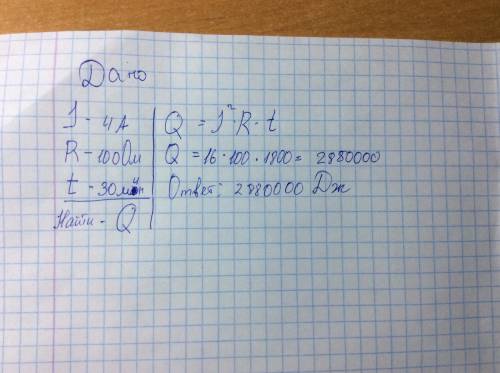 Дано
I - 4 А
R - 100 Ом
t - 30 мин
Найти - Q
Q = I²·R·t
Q = 16·100·1800 = 2880000
Ответ: 2880000 Дж